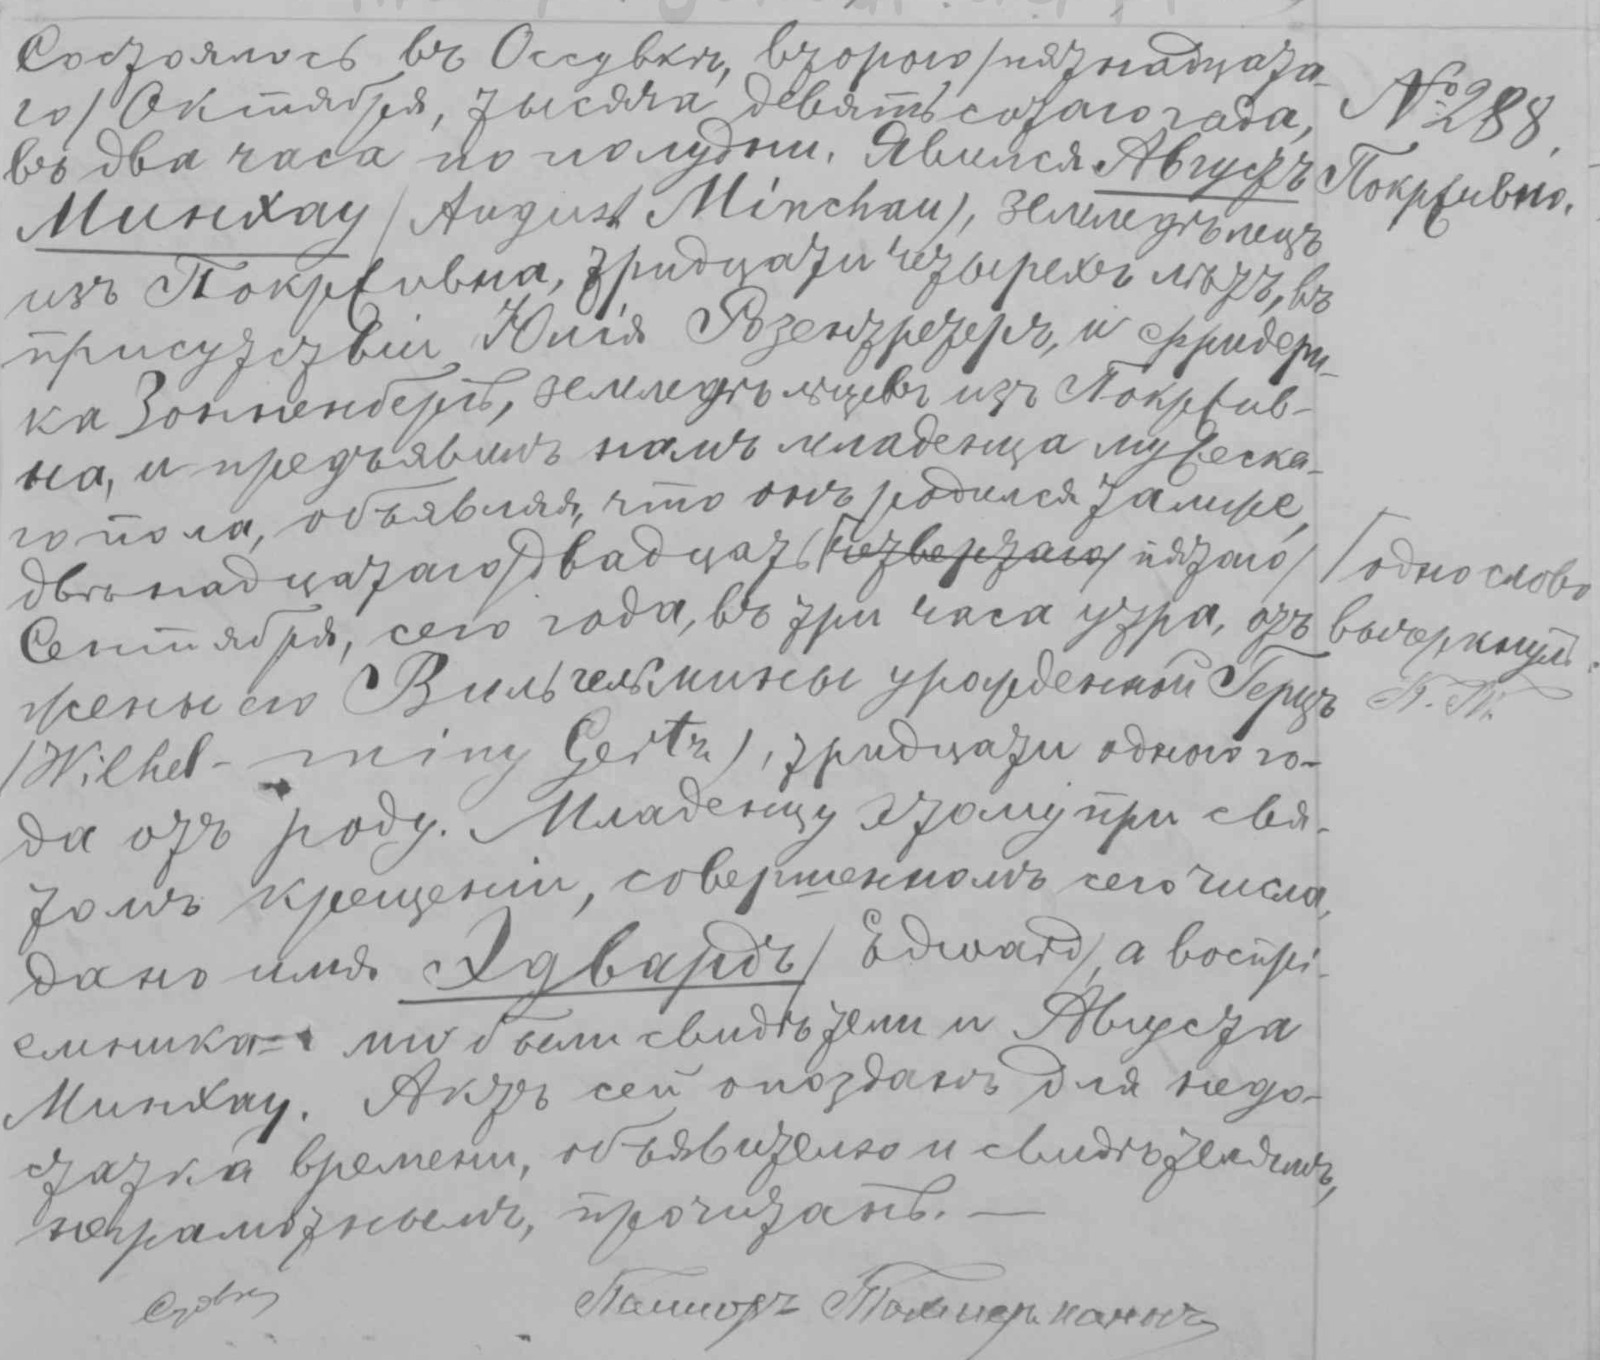 Состоялось въ Оссувкѣ, второго/пятнадцата-
го/ Октября, тысяча девятьсотаго года,
въ два часа по полудни. Явился Августъ
Минхау /August Minchau/, земледѣлецъ
изъ Покрживна, тридцати четырехъ лѣтъ, въ
присутствіи Юлія Розентретеръ, и Фридери-
ка Зонненбергъ, земледѣльцевъ изъ Покржив-
на, и предъявилъ намъ младенца мужеска-
го пола, объявляя, что онъ родился тамже,
двѣнадцатаго/двадцать четвертаго/ пятаго/
Сентября, сего года, въ три часа утра, отъ
жены его Вильгельмины урожденной Герцъ
/Wilhel-miny Gertz/, тридцати одного го-
да отъ роду. Младенцу этому при свя-
томъ крещеніи, совершенномъ сего числа,
дано имя Эдвардъ/ Edward/, а воспрі-
емника-ми были свидѣтели и Августа
Минхау. Актъ сей опозданъ для недо-
статка времени, объявителю и свидѣтелямъ,
неграмотнымъ, прочитанъ. —
Пасторъ
№ 288.
Покрживно.
/одно слово
вычеркнуть.